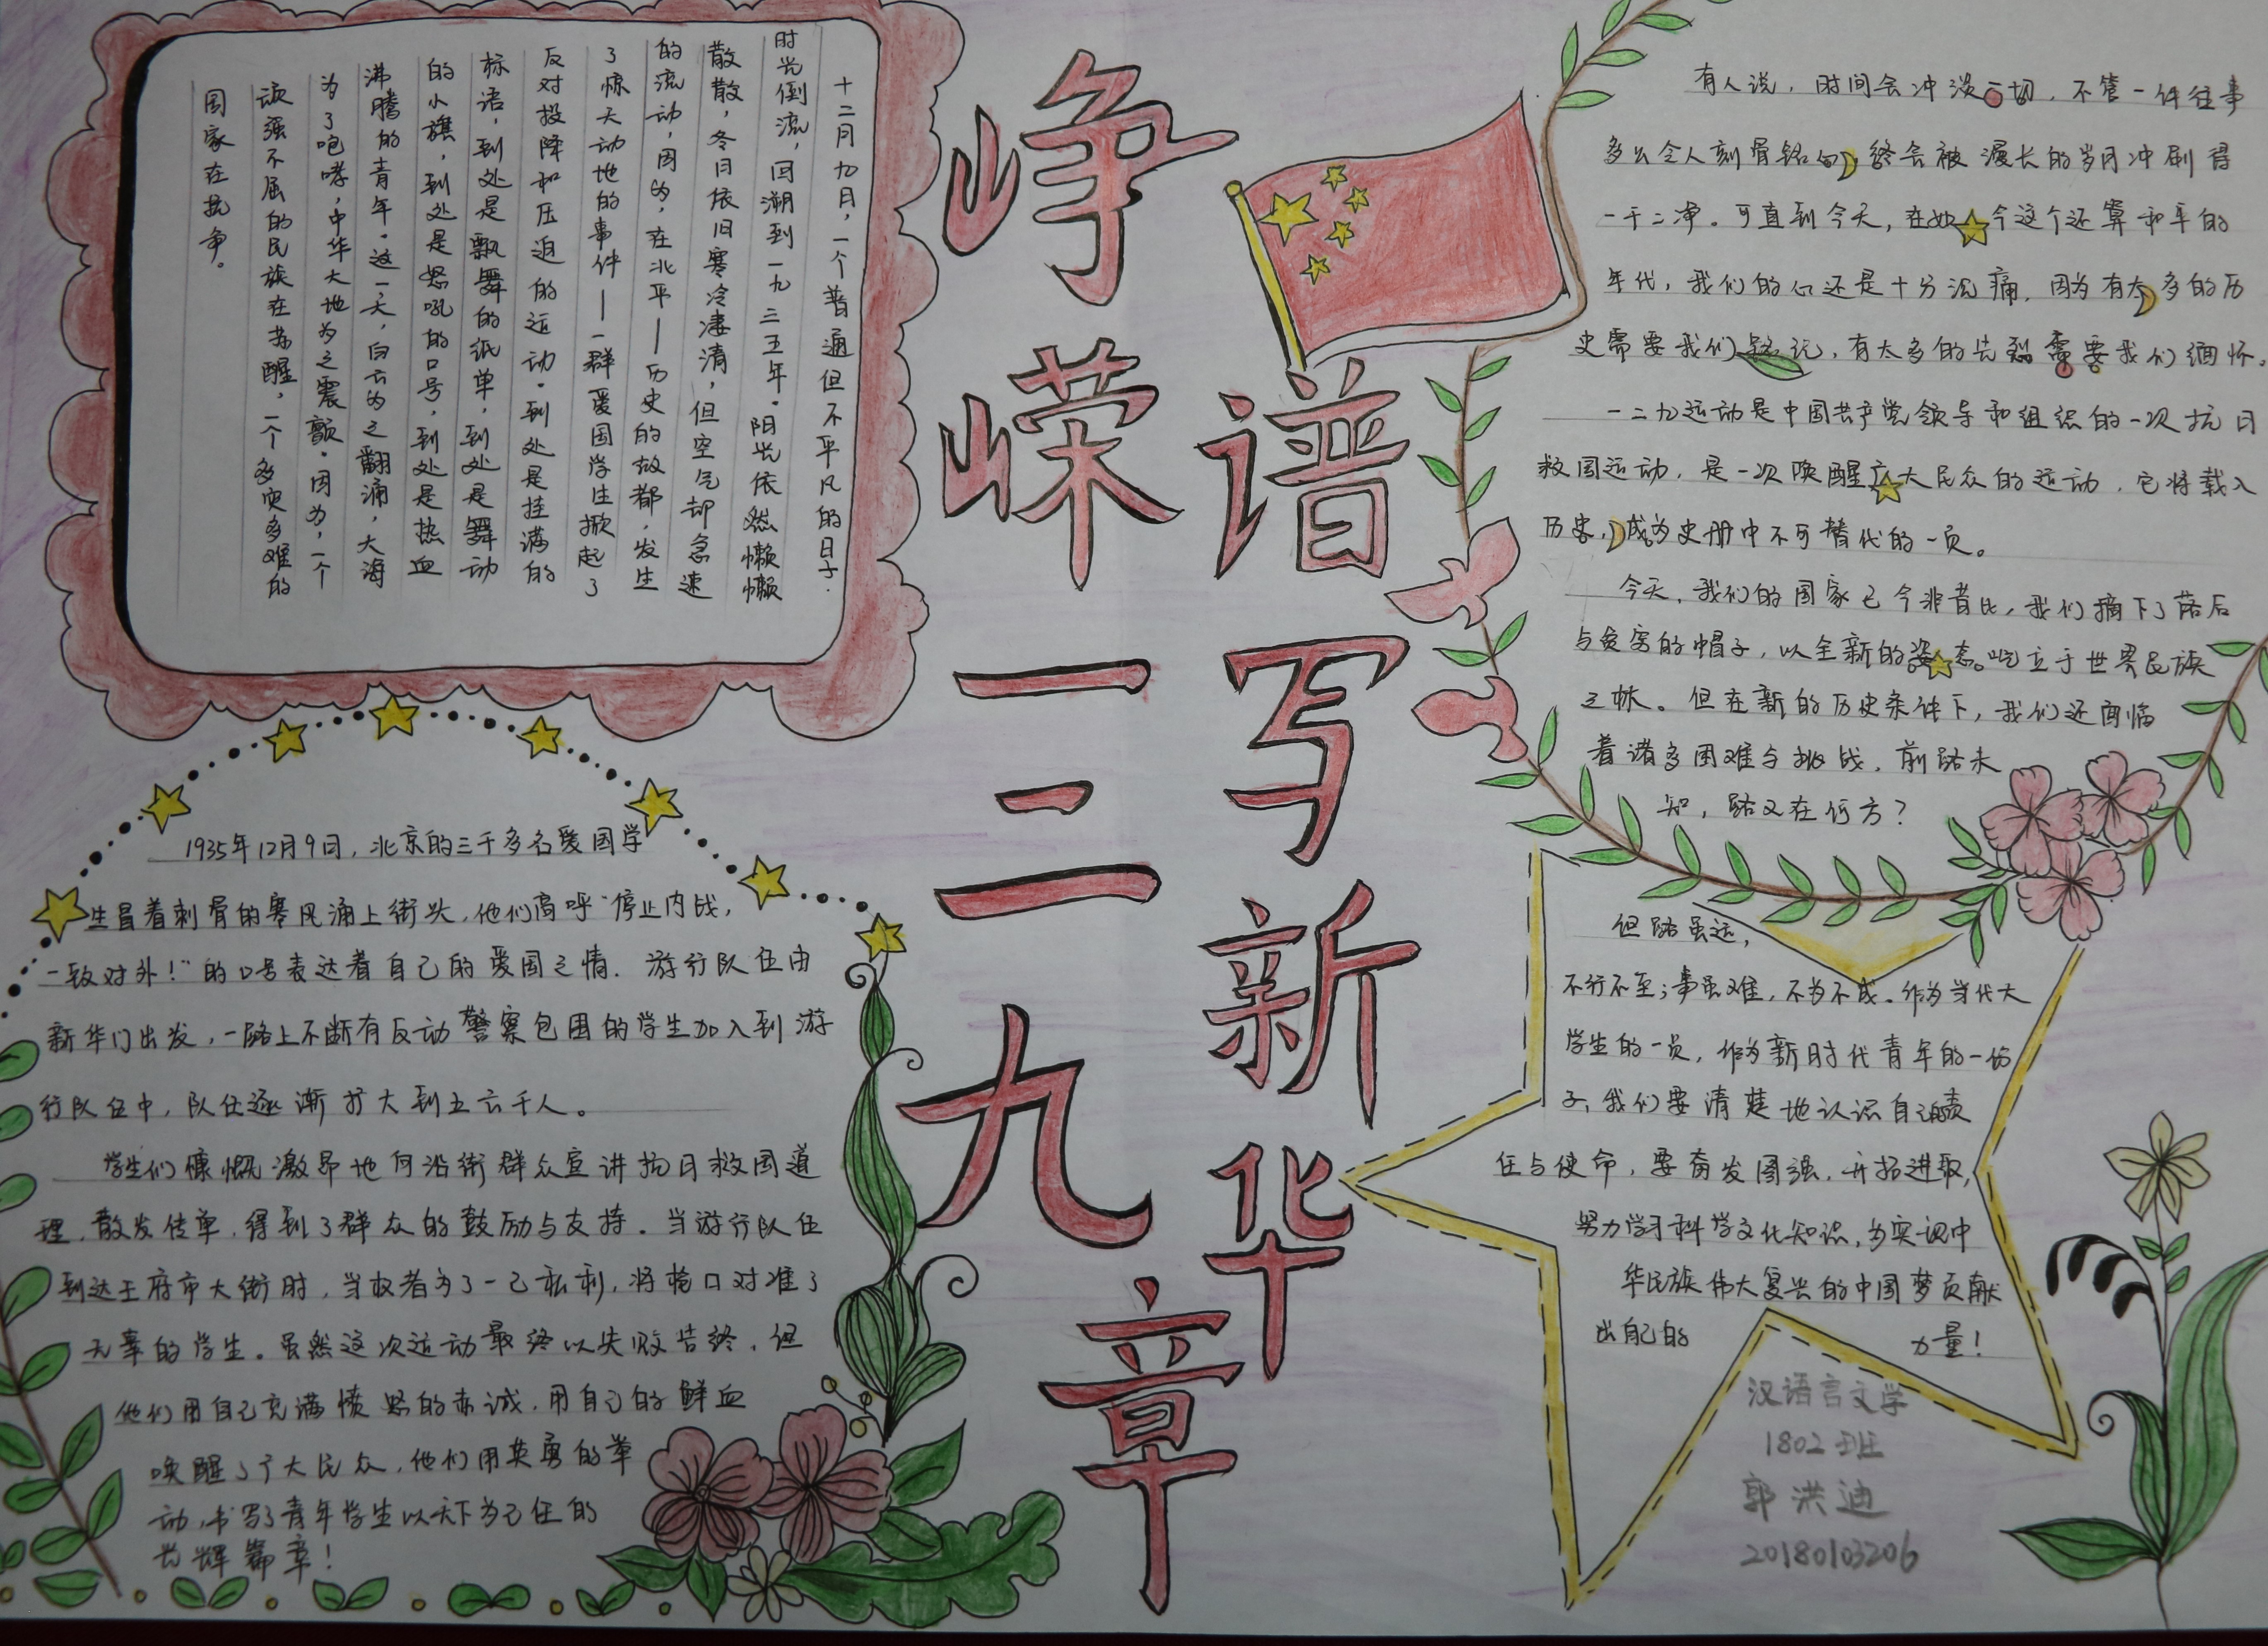 峥嵘一二九
谱写新华章
十二月九日,一个普通但不平凡的日子.
时光倒流,回溯到一九三五年.阳光依然懒懒
散散,冬日依旧寒冷凄清,但空气却急速
的流动,因为,在北平—历史的故都,发生
了惊天动地的事件—一群爱国学生掀起了
反对投降和压迫的运动.到处是挂满的
标语,到处是飘舞的纸单,到处是舞动
的小旗,到处是怒吼的口号,到处是热血
沸腾的青年.这一天,白云为之翻涌,大海
为了咆哮,中华大地为之震颤.因为,一个
顽强不屈的民族在苏醒,一个多灾多难的
国家在抗争.
1935年12月9日,北京的三千多名爱国学
生冒着刺骨的寒风涌上街头,他们高呼“停止内战,
一致对外!”的口号表达着自己的爱国之情.游行队伍由
新华门出发,一路上不断有反动警察包围的学生加入到游
行队伍中,队伍逐渐扩大到五六千人。
学生们慷慨激昂地向沿街群众宣讲抗日救国道
理,散发传单,得到了群众的鼓励与支持.当游行队伍
到达王府市大街时,当权者为了一己私利,将枪口对准了
无辜的学生。虽然这次运动最终以失败告终,但
他们用自己充满愤怒的赤诚,用自己的鲜血
唤醒了广大民众,他们用英勇的举
动,书写了青年学生以天下为己任的
光辉篇章!
有人说,时间会冲淡一切,不管一件往事
多么令人刻骨铭心,终会被漫长的岁月冲刷得
一干二净。可直到今天,在如今这个还算和平的
年代,我们的心还是十分沉痛,因为有太多的历
史需要我们铭记,有太多的先烈需要我们缅怀。
一二九运动是中国共产党领导和组织的一次抗日
救国运动,是一次唤醒广大民众的运动,它将载入
历史,成为史册中不可替代的一页。
今天,我们的国家已今非昔比,我们摘下了落后
与贫穷的帽子,以全新的姿态屹立于世界民族
之林。但在新的历史条件下,我们还面临
着诸多困难与挑战,前路未
知,路又在何方?
但路虽远,
不行不至;事虽难,不为不成.作为当代大
学生的一员,作为新时代青年的一份
子,我们要清楚地认识自己的责
任与使命,要奋发图强,开拓进取,
努力学习科学文化知识,为实现中
华民族伟大复兴的中国梦贡献
出自己的 力量!
汉语言文学
1802班
郭洪迪
20180103206